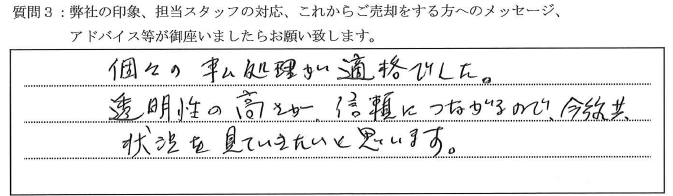 質問３：弊社の印象、担当スタッフの対応、これからご売却をする方へのメッセージ、
アドバイス等が御座いましたらお願い致します。
個々の事ム処理が適格でした。
透明性の高さが、信頼につながるので、今後共、
状況を見ていきたいと思います。